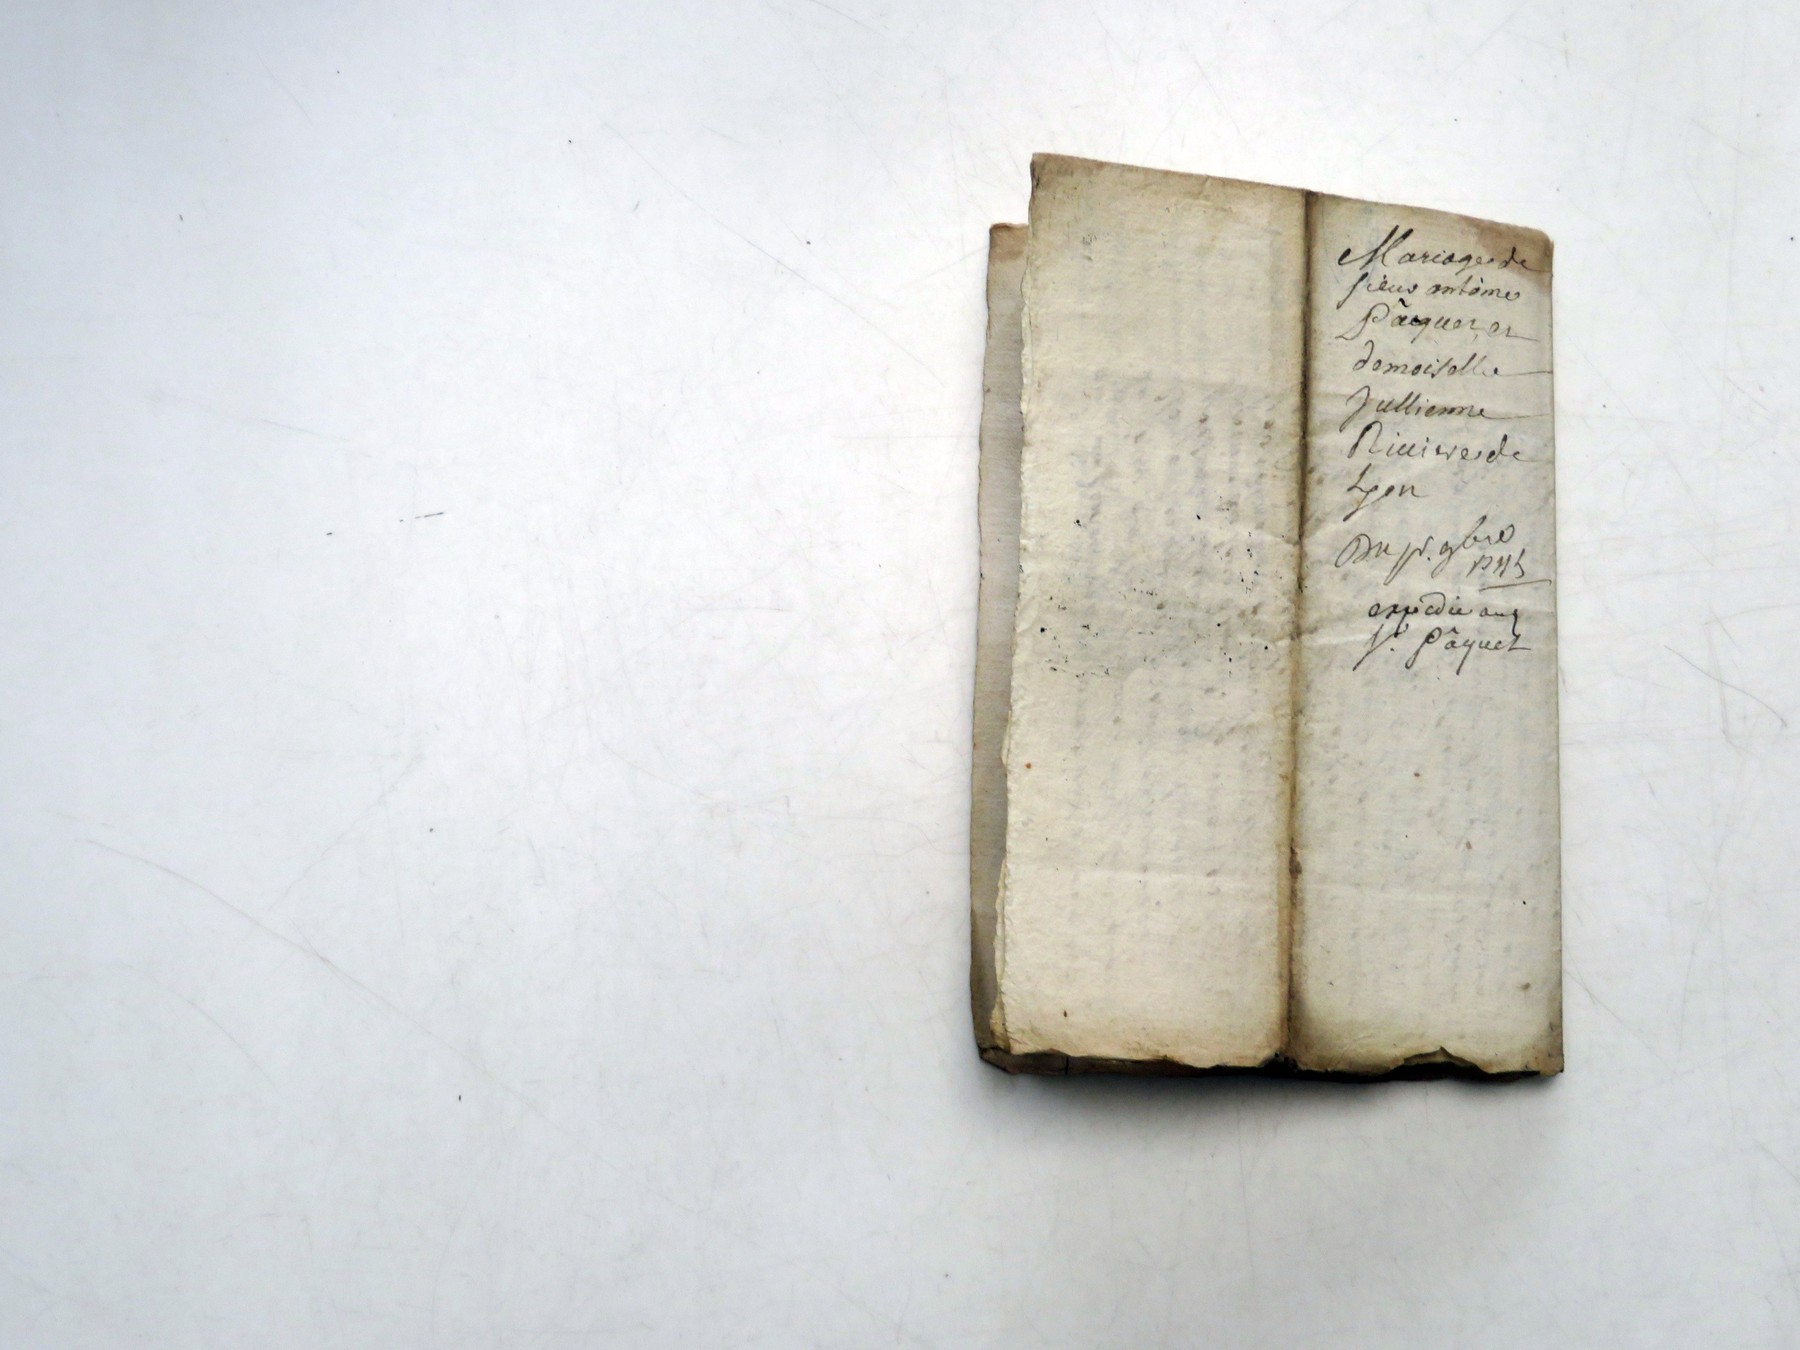 Mariage de
sieur antoine
Pâquet et
demoiselle
Jullienne
Riuiere de
Lyon
Du 9bre
expedie aud
sr. Pâquet